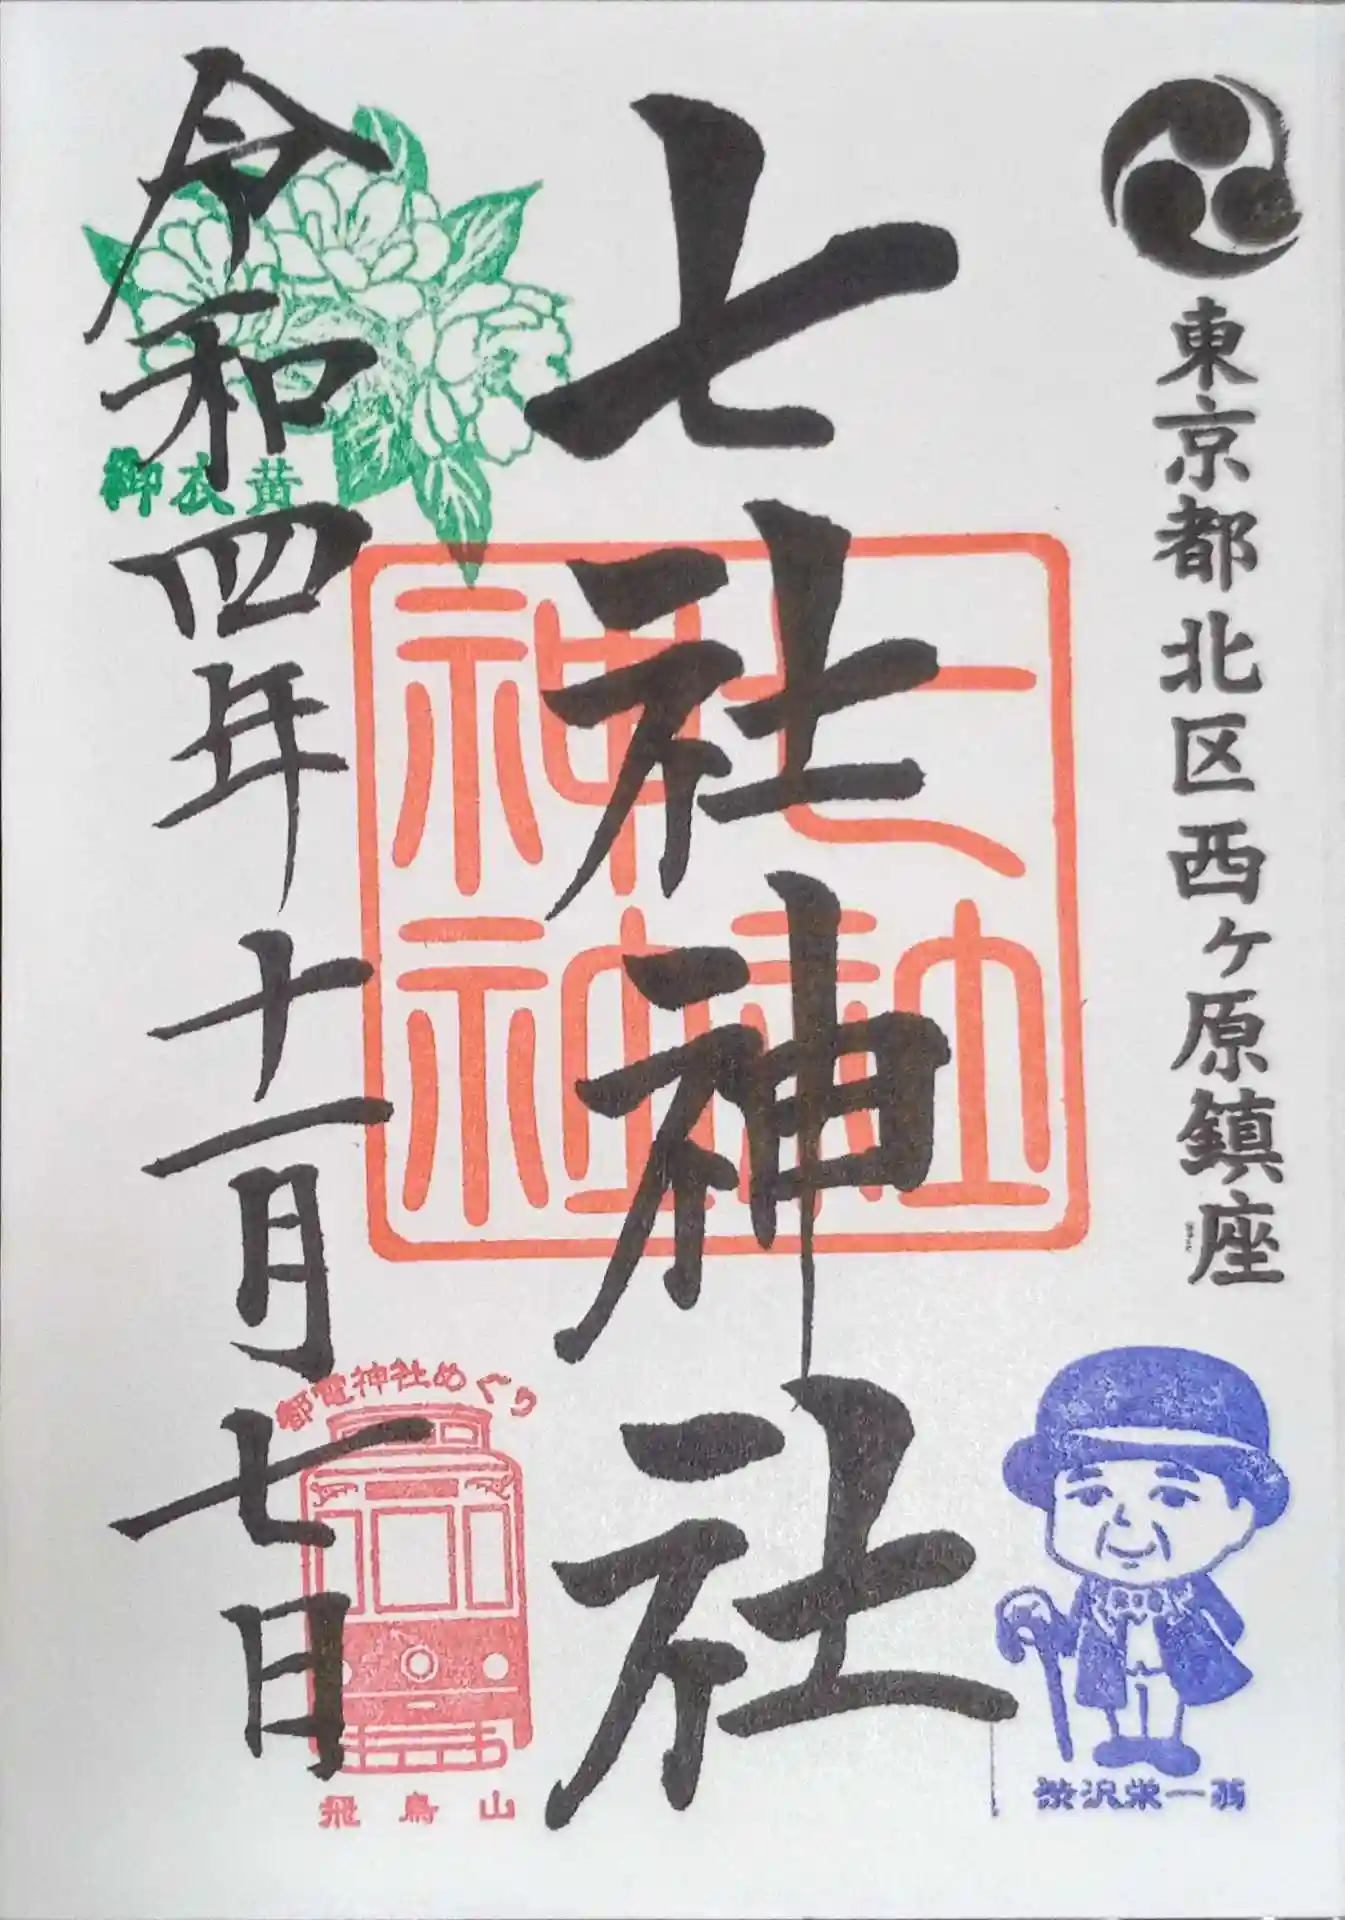 東京都北区西ヶ原鎮座
七社神社
七社神社
令和四年十一月七日
御衣黄
都電神社めぐり
飛鳥山
渋沢栄一翁